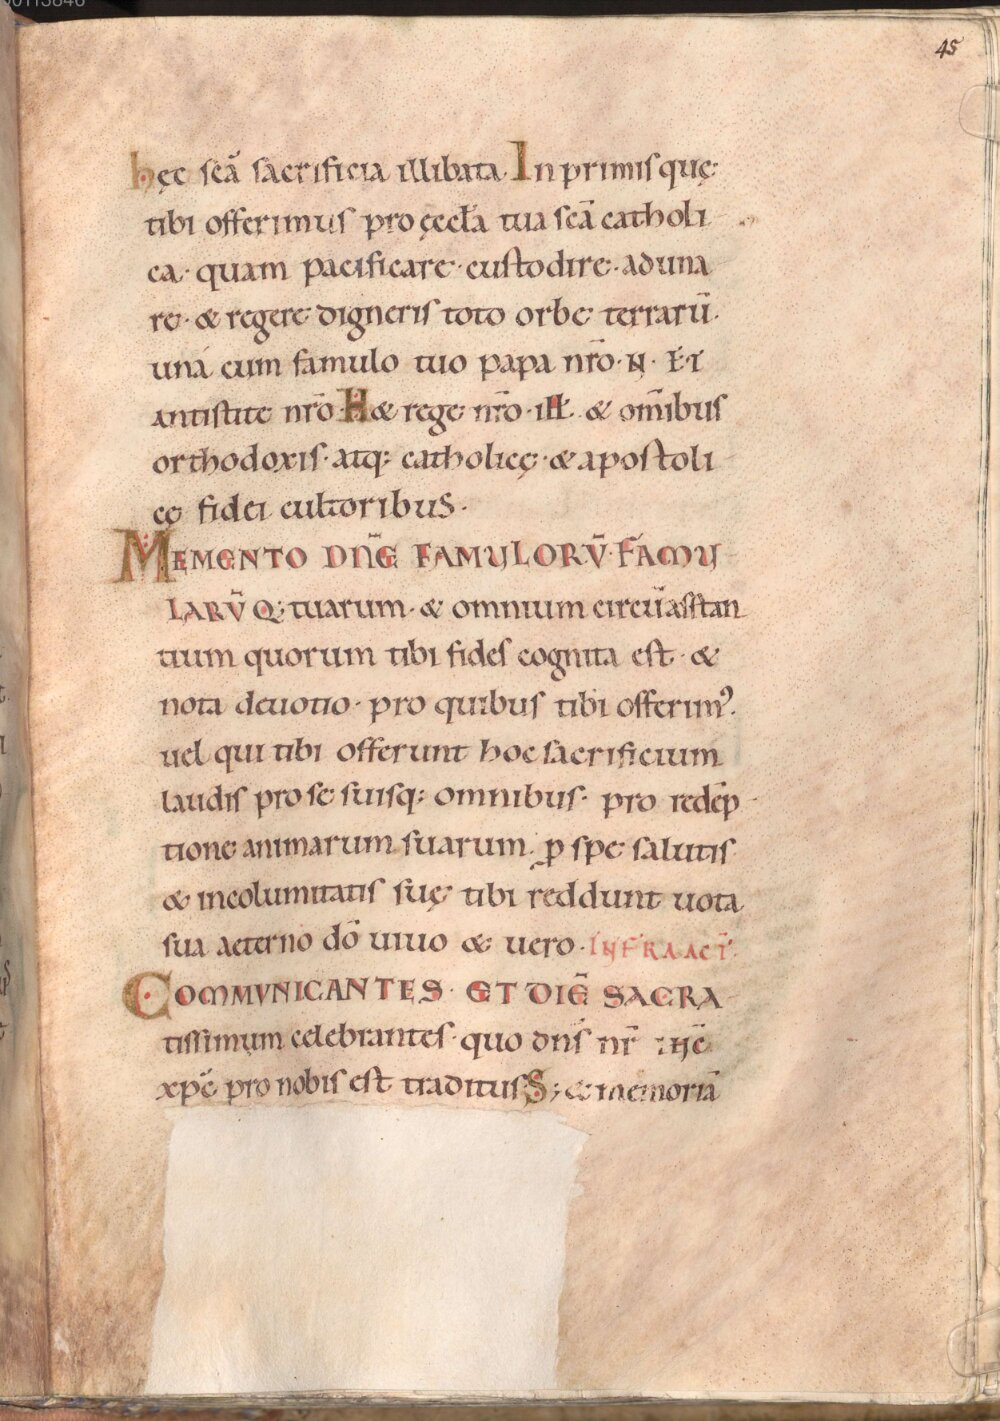 45
hęc scā sacrificia illibata. In primis quę
tibi offerimus pro ęccła tua scā catholi
ca. quam pacificare. custodire. aduna
re. & regere digneris toto orbe terrarū.
una cum famulo tuo papa nr̄o. N. Et
antistite nr̄o. H & rege nr̄o. iłł. & om̄ibus
orthodoxis. atq: catholicę. & apostoli
cę fidei cultoribus.
MEMENTO DN̄E FAMULORŪ. FAMU
LARŪ Q; tuarum. & omnium circū asstan
tium quorum tibi fides cognita est. &
nota deuotio. pro quibus tibi offerimꝰ.
uel qui tibi offerunt hoc sacrificium
laudis pro se suisq: omnibus. pro redēp
tione animarum suarum. ꝑ spe salutis
& incolumitatis suę tibi reddunt uota
sua aeterno dō uiuo & uero. INFRA ACT̄.
COMMUNICANTES. ET DIĒ SACRA
tissimum celebrantes. quo dn̄s nr̄ ihc̄
xpc̄ pro nobis est traditus S; & memoriā